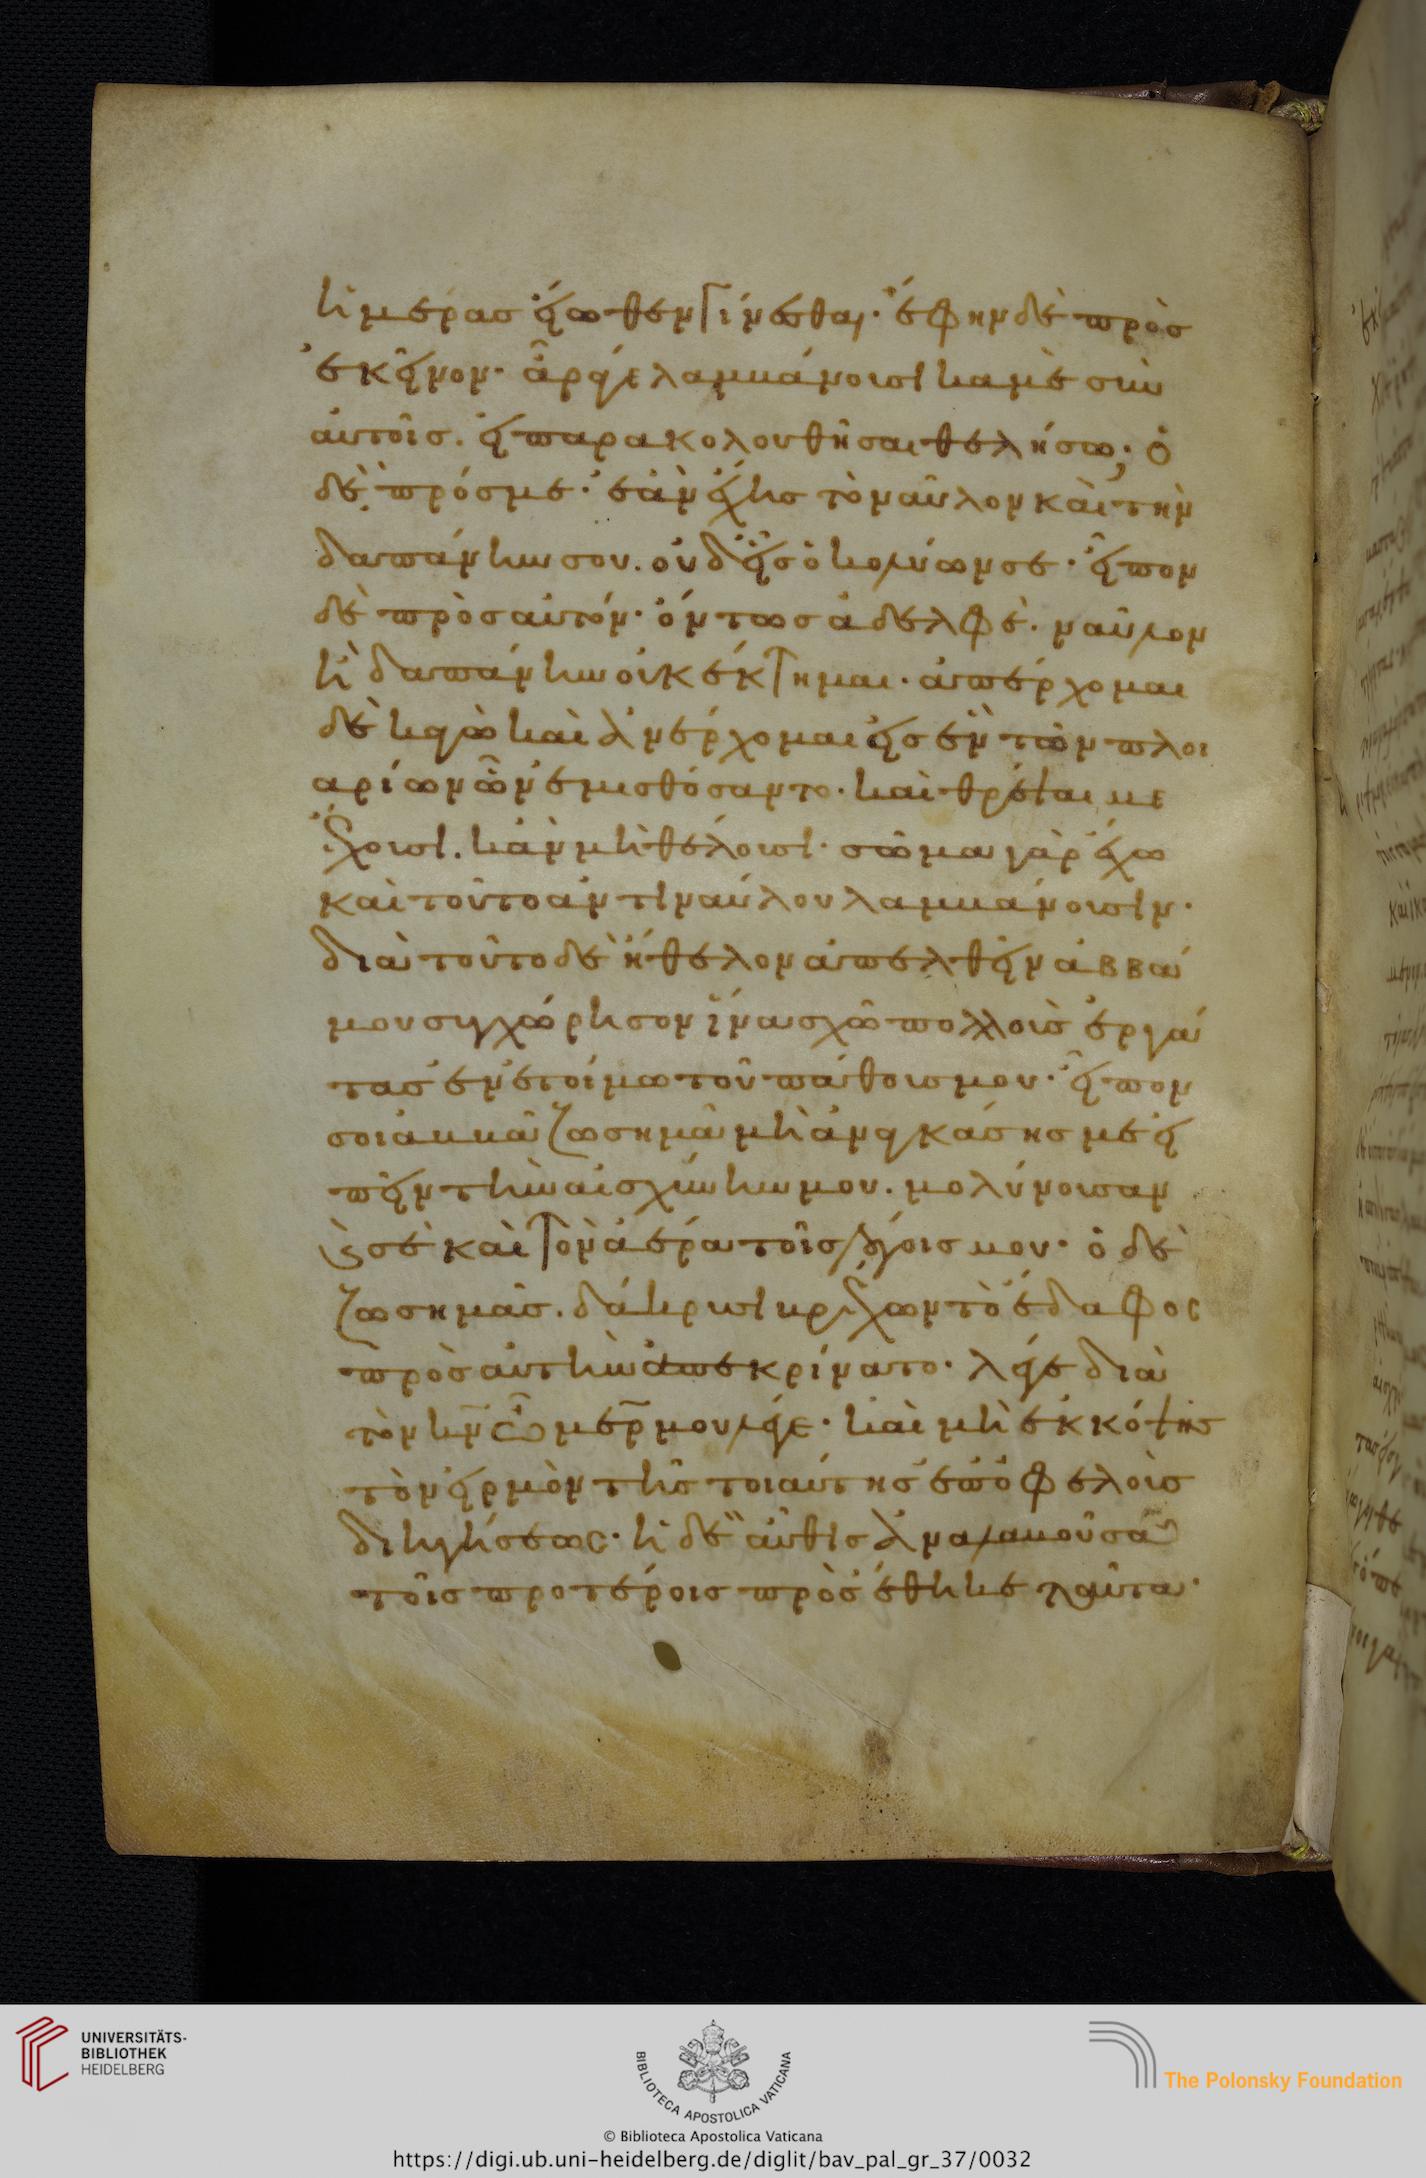 ἡμέρας εἴωθεν γίνεσθαι· ἔφην δὲ πρὸς
ἐκεῖνον· ἆρά γε λαμβάνουσι καμὲ σὺν
αὐτοῖς. εἰ παρακολουθῆσαι θελήσω; ὁ
δὲ πρός με· ἐὰν ἔχης τὸ ναῦλον καὶ τὴν
δαπάνην σου. οὐδεὶς ὁ κολύων σε· εἶπον
δὲ πρὸς αὐτόν· ὄντως ἀδελφὲ. ναῦλον
ἢ δαπάνην οὐκ ἔκτημαι· ἀπέρχομαι
δὲ κἀγὼ καὶ ἀνέρχομαι εἰς ἓν τῶν πλοι
αρίων ὧν ἐμισθόσαντο· καὶ θρέψαι με
ἔχουσι. κἂν μὴ θέλουσι· σῶμα γὰρ ἔχω
καὶ τοῦτο ἀντὶ ναύλου λαμβάνουσιν·
διὰ τοῦτο δὲ ἤθελον ἀπελθεῖν ἀββά
μου συγχώρησον ἵνα σχῶ πολλοὺς ἐργά
τας ἐν ἑτοίμω τοῦ πάθους μου· εἶπον
σοι ἀββᾶ ζωσημᾶ μὴ ἀναγκάσης με εἰ
πεῖν τὴν αἰσχύνην μου. μολύνουσαν
καὶ σὲ καὶ τὸν ἀέρα τοῖς λόγοις μου· ὁ δὲ
ζωσημᾶς. δάκρυσι βρέχων τὸ ἔδαφος
πρὸς αὐτὴν ἀπεκρίνατο· λέγε διὰ
τὸν κν ὦ μερ μου λέγε· καὶ μὴ ἐκκόψης
τὸν εἱρμὸν τῆς τοιαύτης ἐπὸφελοὺς
διηγήσεως· ἡ δὲ αὖθις ἀναλαβοῦσα
τοῖς προτέροις προσέθηκε ταῦτα·
UNIVERSITÄTS-
BIBLIOTHEK
HEIDELBERG
BIBLIOTECA APOSTOLICA VATICANA
© Biblioteca Apostolica Vaticana
The Polonsky Foundation
https://digi.ub.uni-heidelberg.de/diglit/bav_pal_gr_37/0032